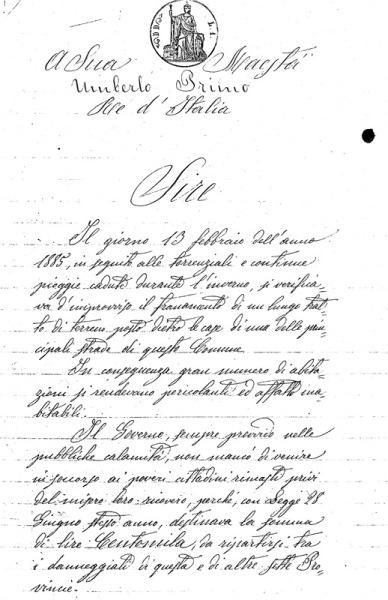 A Sua Maestà
Umberto Primo
Re d'Italia
Sire
Il giorno 13 febbraio dell'anno
1885, in seguito alle torrenziali e continue
pioggie cadute durante l'inverno, si verifica-
va d'improvviso il franamento di un lungo trat-
to di terreno posto dietro le case di una delle prin-
cipali strade di questo Comune.
In conseguenza gran numero di abita-
zioni si rendevano pericolanti ed affatto ina-
bitabili.
Il Governo, sempre provvido nelle
pubbliche calamità, non mancò di venire
in soccorso ai poveri cittadini rimasti privi
del misero loro ricovero, perchè, con Legge 28
Giugno stesso anno, destinava la somma
di lire Centomila, da ripartirsi tra
i danneggiati di questa e di altre sette Pro-
vincie.